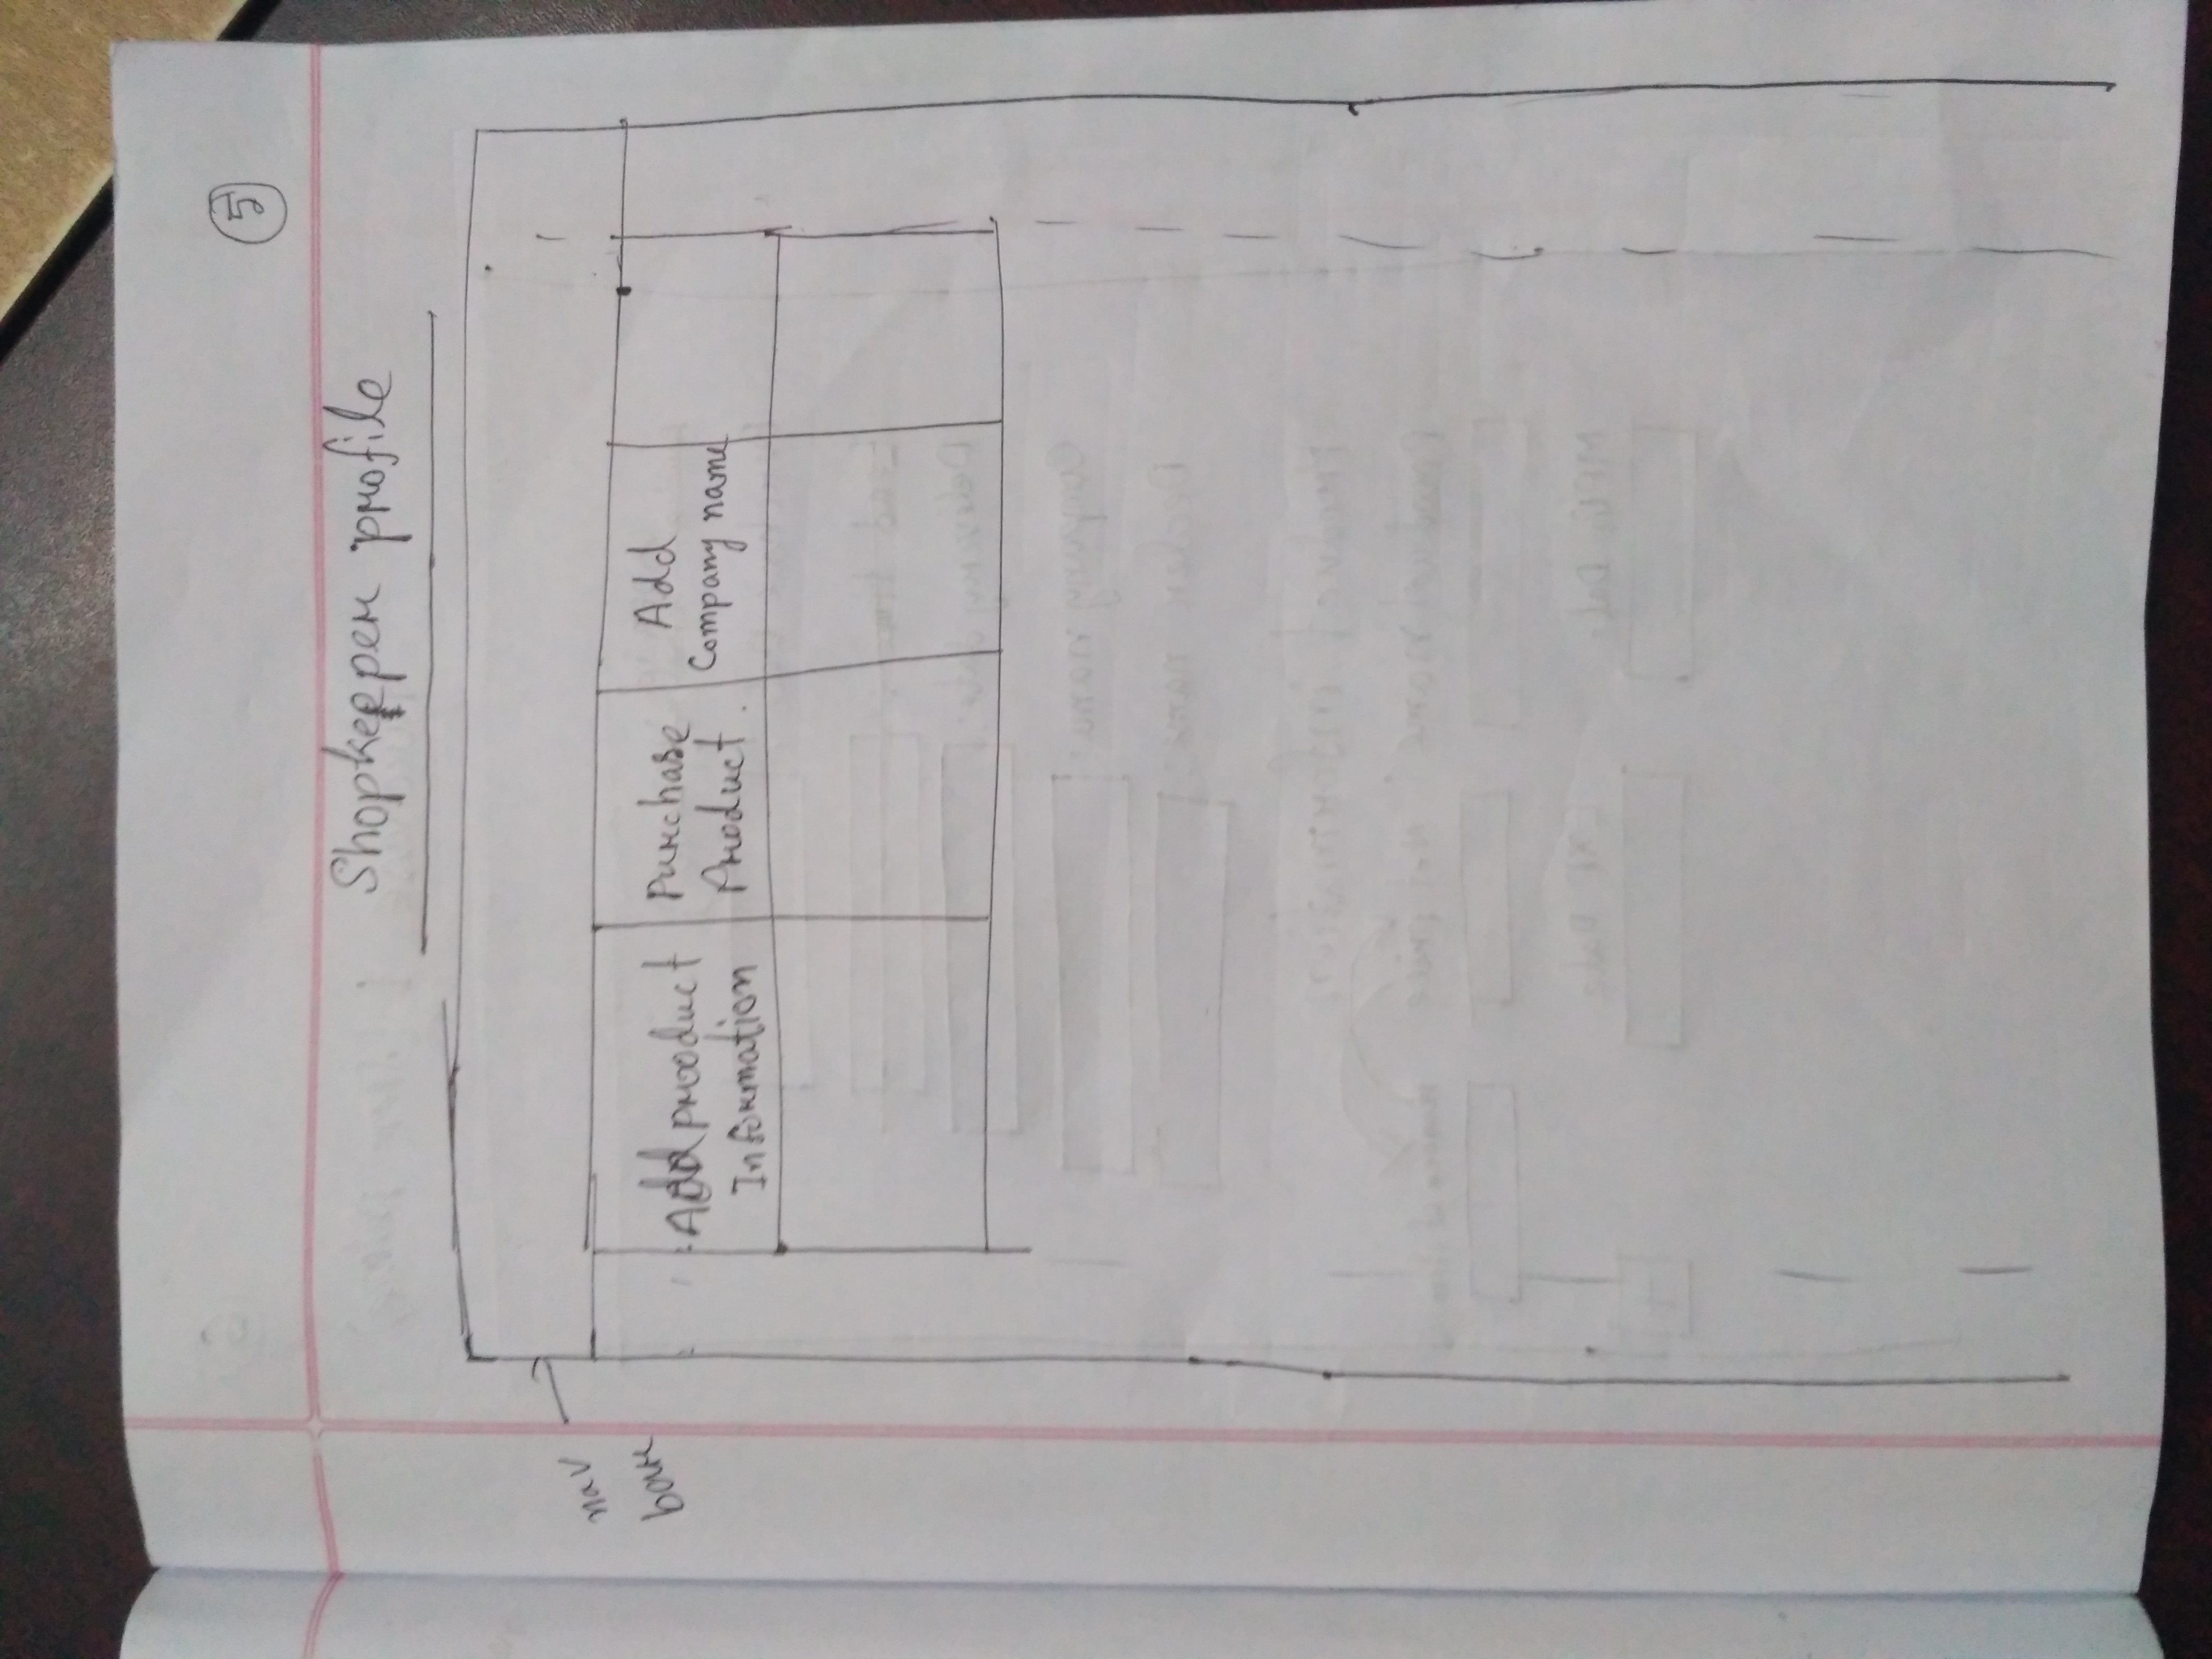 5
Shopkeeper profile
nav
bar
Add product
Information
Purchase
Product.
Add
Company name